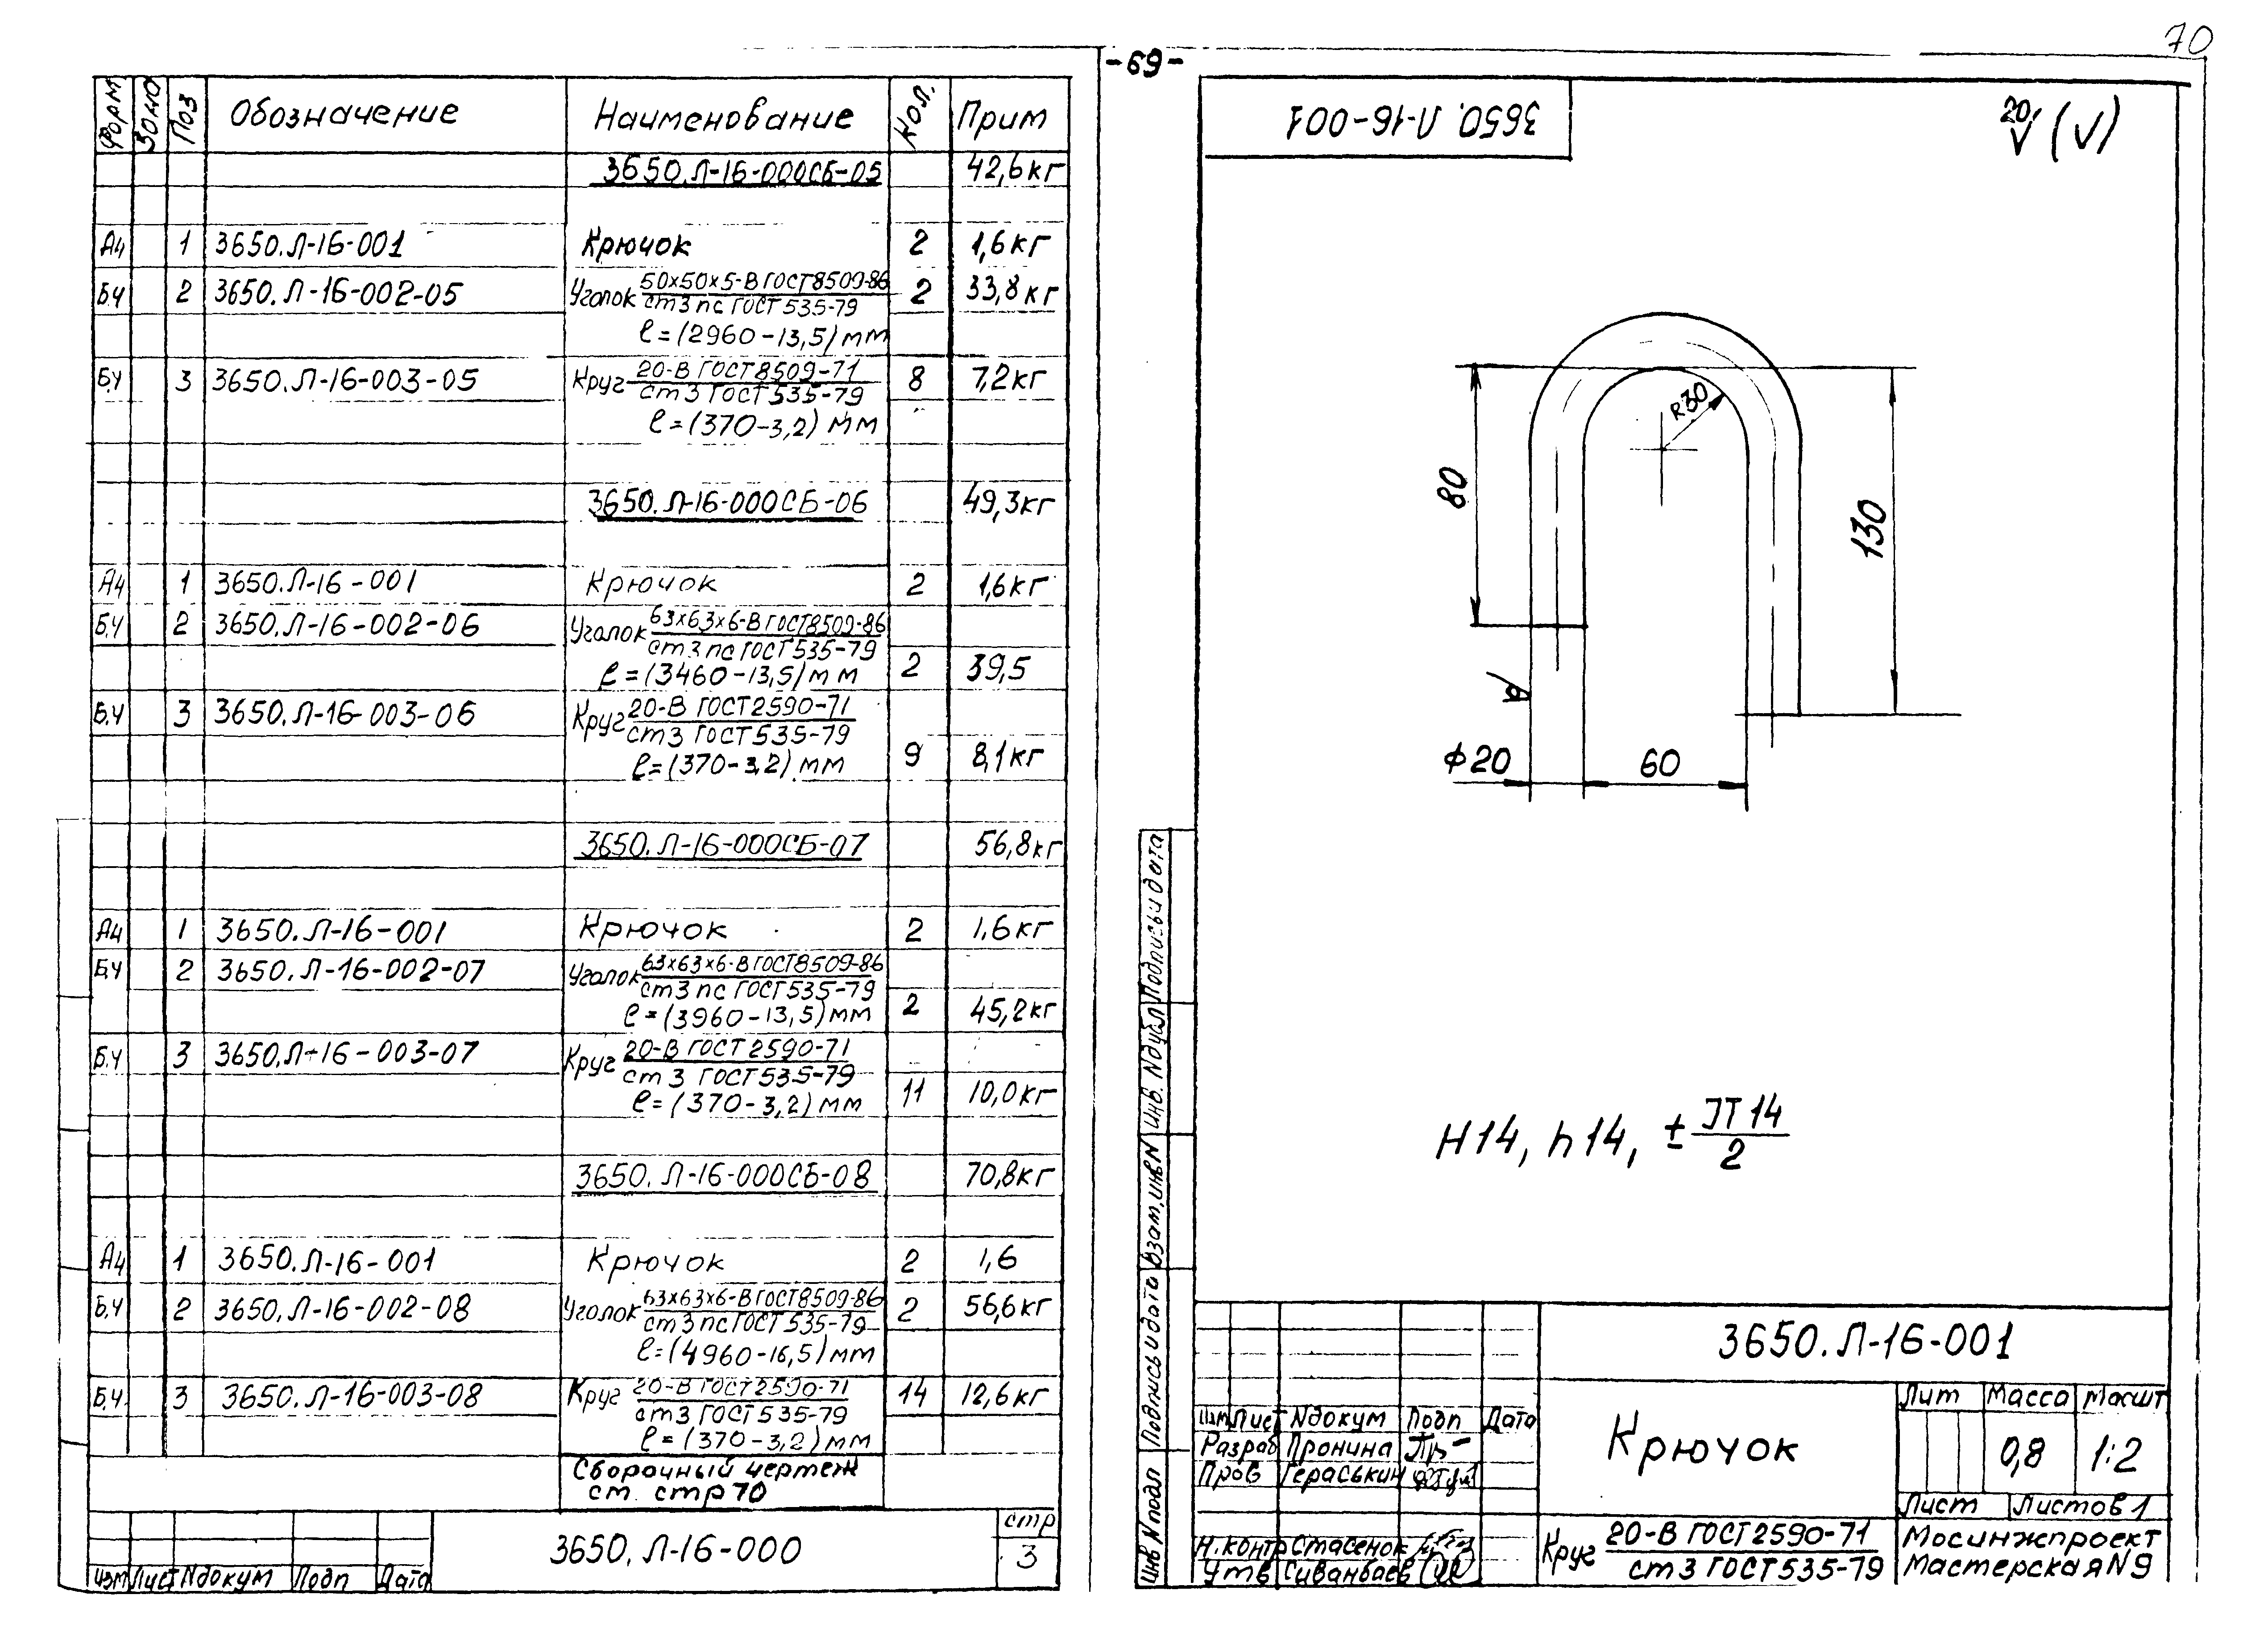 70
-69-
Форм Зона Поз Обозначение Наименование Кол. Прим
3650.Л-16-000СБ-05 42,6кг
А4 1 3650.Л-16-001 Крючок 2 1,6кг
Б.Ч 2 3650.Л-16-002-05 Уголок 50х50х5-В ГОСТ8509-86 2 33,8кг
ст3пс ГОСТ535-79
ℓ=(2960-13,5)мм
Б.Ч 3 3650.Л-16-003-05 Круг 20-В ГОСТ8509-71 8 7,2кг
ст3 ГОСТ535-79
ℓ=(370-3,2) мм
3650.Л-16-000СБ-06 49,3кг
А4 1 3650.Л-16-001 Крючок 2 1,6кг
Б.Ч 2 3650.Л-16-002-06 Уголок 63х63х6-В ГОСТ8509-86
ст3пс ГОСТ535-79
ℓ=(3460-13,5)мм 2 39,5
Б.Ч 3 3650.Л-16-003-06 Круг 20-В ГОСТ2590-71
ст3 ГОСТ535-79
ℓ=(370-3,2)мм 9 8,1кг
3650.Л-16-000СБ-07 56,8кг
А4 1 3650.Л-16-001 Крючок 2 1,6кг
Б.Ч 2 3650.Л-16-002-07 Уголок 63х63х6-В ГОСТ8509-86
ст3пс ГОСТ535-79
ℓ=(3960-13,5)мм 2 45,2кг
Б.Ч 3 3650.Л-16-003-07 Круг 20-В ГОСТ2590-71
ст3 ГОСТ535-79
ℓ=(370-3,2)мм 11 10,0кг
3650.Л-16-000СБ-08 70,8кг
А4 1 3650.Л-16-001 Крючок 2 1,6
Б.Ч 2 3650.Л-16-002-08 Уголок 63х63х6-В ГОСТ8509-86 2 56,6кг
ст3пс ГОСТ535-79
ℓ=(4960-16,5)мм
Б.Ч. 3 3650.Л-16-003-08 Круг 20-В ГОСТ2590-71 14 12,6кг
ст3 ГОСТ535-79
ℓ=(370-3,2)мм
Сборочный чертеж
см. стр 70
3650.Л-16-000
стр
3
Изм Лист Nдокум Подп Дата
3650.Л-16-001
20 √ (√)
R30
80
130
ф20
60
H14, h14, ± JT14
2
Подпись и дата
Инв. Nдубл
Взам.инвN
Подпись и дата
Инв Nподл
3650.Л-16-001
Изм Лист Nдокум Подп Дата
Разраб Пронина
Пров Гераськин
Н.контр Стасенок
Утв Сиванбаев
Крючок
Лит Масса Масшт
0,8 1:2
Лист Листов 1
Круг 20-В ГОСТ2590-71
ст3 ГОСТ535-79
Мосинжпроект
Мастерская N9